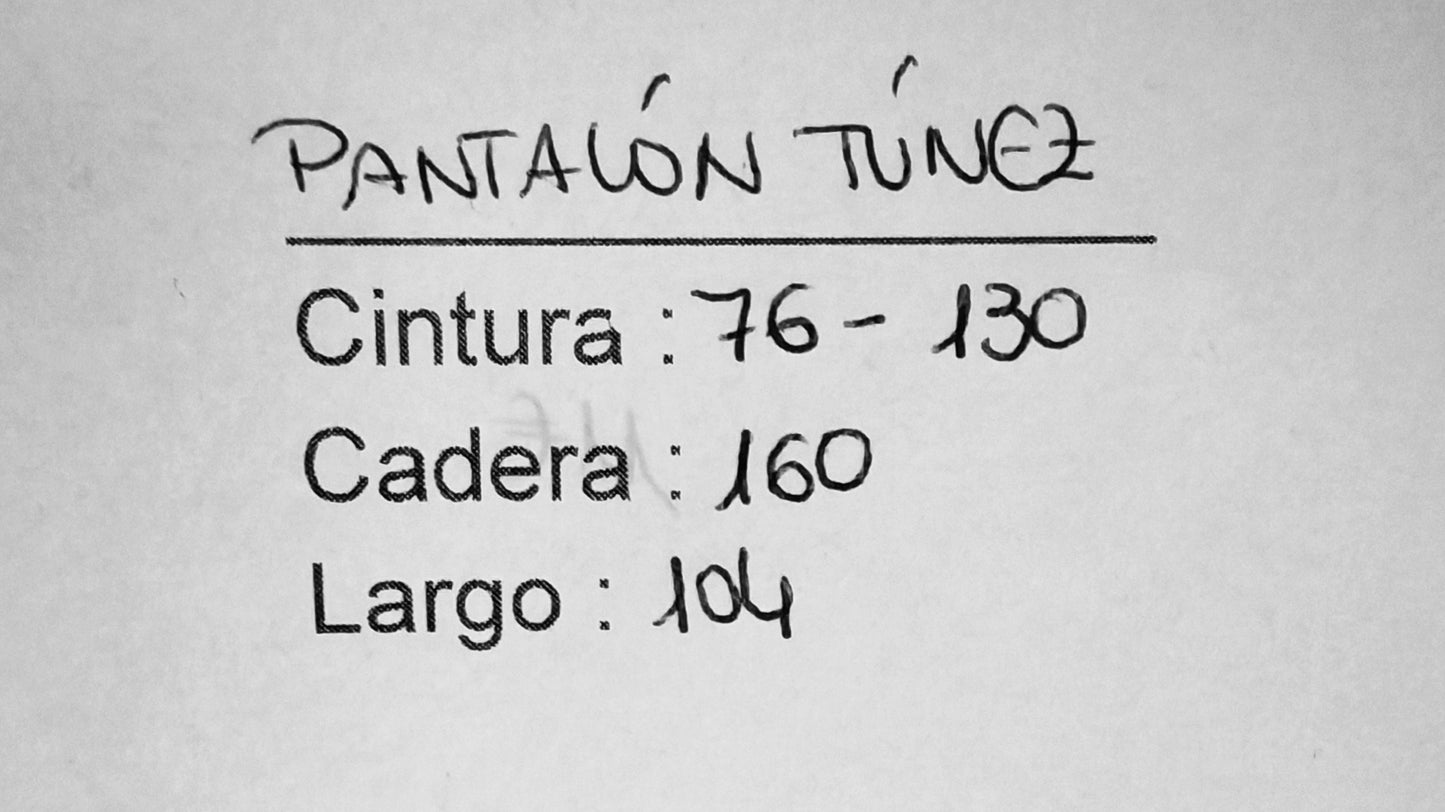 PANTALÓN TÚNEZ
Cintura : 76 - 130
Cadera : 160
Largo : 104